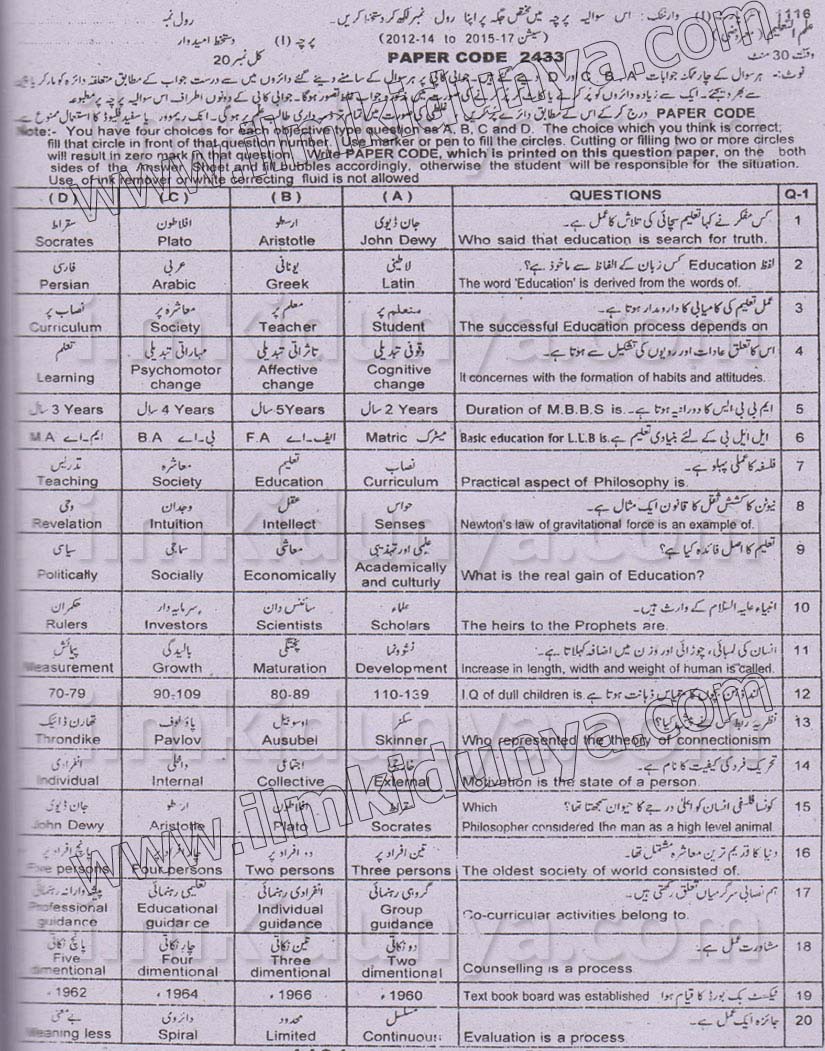 116 (I) وارننگ : اس سوالیہ پرچہ میں مختص جگہ پر اپنا رول نمبر لکھ کر دستخط کریں۔ رول نمبر
علم التعلیم (معروضی) (سیشن 2015-17 to 2012-14) پرچہ (I) دستخط امیدوار
وقت 30 منٹ PAPER CODE 2433 کل نمبر 20
نوٹ:- ہر سوال کے چار ممکنہ جوابات A، B، C اور D دیئے گئے ہیں۔ جوابی کاپی پر ہر سوال کے سامنے دیئے گئے دائروں میں سے درست جواب کے مطابق متعلقہ دائرہ کو مارکر یا پین
سے بھر دیجئے۔ ایک سے زیادہ دائروں کو پر کرنے یا کاٹ کر پر کرنے کی صورت میں مذکورہ جواب غلط تصور ہوگا۔ جوابی کاپی کے دونوں اطراف اس سوالیہ پرچہ پر مطبوعہ
PAPER CODE درج کر کے اس کے مطابق دائرے پر کریں
Note:- You have four choices for each objective type question as A, B, C and D. The choice which you think is correct;
fill that circle in front of that question number. Use marker or pen to fill the circles. Cutting or filling two or more circles
will result in zero mark in that question. Write PAPER CODE, which is printed on this question paper, on the both
sides of the Answer Sheet and fill bubbles accordingly, otherwise the student will be responsible for the situation.
Use of ink remover or white correcting fluid is not allowed
(D) (C) (B) (A) QUESTIONS Q-1
سقراط افلاطون ارسطو جان ڈیوی کس مفکر نے کہا تعلیم سچائی کی تلاش کا عمل ہے۔ 1
Socrates Plato Aristotle John Dewy Who said that education is search for truth.
فارسی عربی یونانی لاطینی لفظ Education کس زبان کے الفاظ سے ماخوذ ہے؟ 2
Persian Arabic Greek Latin The word 'Education' is derived from the words of.
نصاب پر معاشرہ پر معلم پر متعلم پر عمل تعلیم کی کامیابی کا دارومدار ہوتا ہے۔ 3
Curriculum Society Teacher Student The successful Education process depends on
تعلم مہاراتی تبدیلی تاثراتی تبدیلی وقوفی تبدیلی اس کا تعلق عادات اور رویوں کی تشکیل سے ہوتا ہے۔ 4
Learning Psychomotor change Affective change Cognitive change It concernes with the formation of habits and attitudes.
3 Years سال 4 Years سال 5Years سال 2 Years سال Duration of M.B.B.S is. ایم بی بی ایس کا دورانیہ ہوتا ہے۔ 5
M.A ایم۔اے B.A بی۔اے F.A ایف۔اے Matric میٹرک Basic education for L.L.B is. ایل ایل بی کے لئے بنیادی تعلیم ہے 6
تدریس معاشرہ تعلیم نصاب فلسفہ کا عملی پہلو ہے۔ 7
Teaching Society Education Curriculum Practical aspect of Philosophy is.
وحی وجدان عقل حواس نیوٹن کا کشش ثقل کا قانون ایک مثال ہے۔ 8
Revelation Intuition Intellect Senses Newton's law of gravitational force is an example of.
سیاسی سماجی معاشی علمی اور تہذیبی تعلیم کا اصل فائدہ کیا ہے؟ 9
Politically Socially Economically Academically and culturly What is the real gain of Education?
حکمران سرمایہ دار سائنس دان علماء انبیاء علیہ السلام کے وارث ہیں۔ 10
Rulers Investors Scientists Scholars The heirs to the Prophets are.
پیمائش بالیدگی پختگی نشوونما انسان کی لمبائی، چوڑائی اور وزن میں اضافہ کہلاتا ہے۔ 11
Measurement Growth Maturation Development Increase in length, width and weight of human is called.
70-79 90-109 80-89 110-139 I.Q of dull children is. کند ذہن بچوں کا مقیاس ذہانت ہوتا ہے 12
تھارن ڈائیک پاؤلوف اوسوبیل سکنر نظریہ ربط کس نے پیش کیا؟ 13
Throndike Pavlov Ausubel Skinner Who represented the theory of connectionism
انفرادی داخلی اجتماعی خارجی تحریک فرد کی کیفیت کا نام ہے۔ 14
Individual Internal Collective External Motivation is the state of a person.
جان ڈیوی ارسطو افلاطون سقراط کونسا فلسفی انسان کو اعلیٰ درجے کا حیوان سمجھتا تھا؟ Which 15
John Dewy Aristotle Plato Socrates Philosopher considered the man as a high level animal.
پانچ افراد پر چار افراد پر دو افراد پر تین افراد پر دنیا کا قدیم ترین معاشرہ مشتمل تھا۔ 16
Five persons Four persons Two persons Three persons The oldest society of world consisted of.
پیشہ وارانہ رہنمائی تعلیمی رہنمائی انفرادی رہنمائی گروہی رہنمائی ہم نصابی سرگرمیاں تعلق رکھتی ہیں۔ 17
Professional guidance Educational guidance Individual guidance Group guidance Co-curricular activities belong to.
پانچ نکاتی چار نکاتی تین نکاتی دو نکاتی مشاورت عمل ہے۔ 18
Five dimentional Four dimentional Three dimentional Two dimentional Counselling is a process
1962ء 1964ء 1966ء 1960ء Text book board was established ٹیکسٹ بک بورڈ کا قیام ہوا 19
بے معنی دائروی محدود مسلسل جائزہ ایک عمل ہے۔ 20
Meaning less Spiral Limited Continuous Evaluation is a process
www.ilmkidunya.com